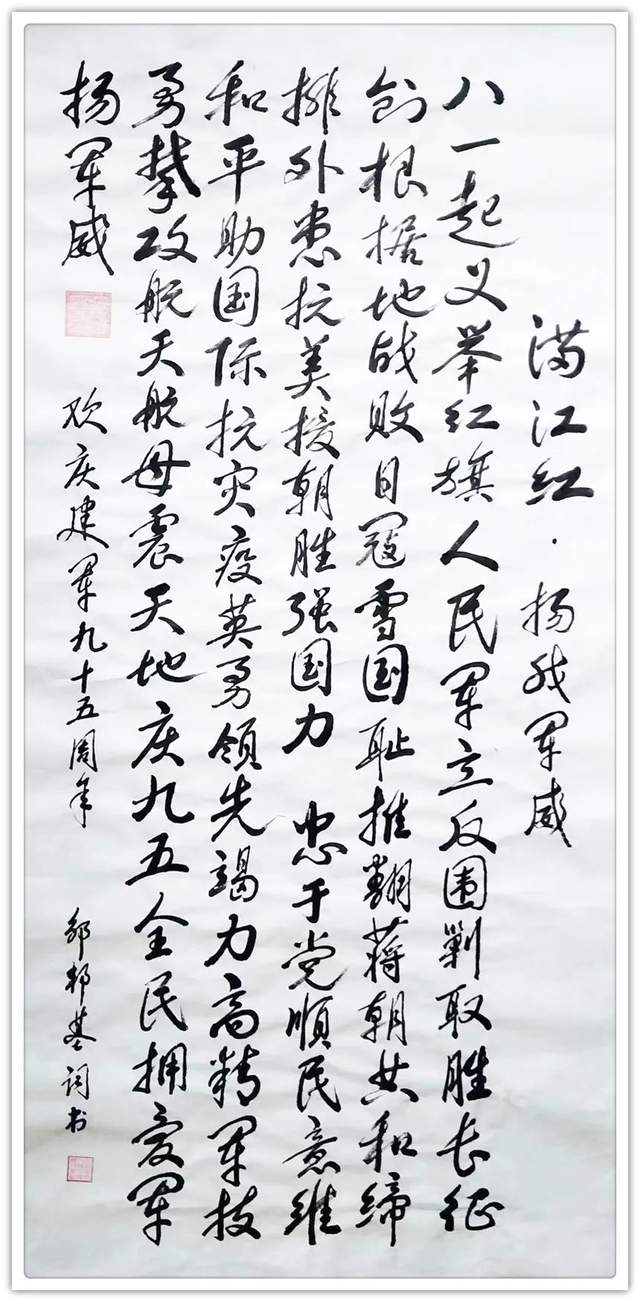 满江红·扬我军威
八一起义举红旗人民军立反围剿取胜长征
创根据地战败日寇雪国耻推翻蒋朝共和缔
排外患抗美援朝胜强国力 忠于党顺民意维
和平助国际抗灾疫英勇领先竭力高精军技
勇攀攻航天航母震天地庆九五全民拥爱军
扬军威
欢庆建军九十五周年
邹邦基词书